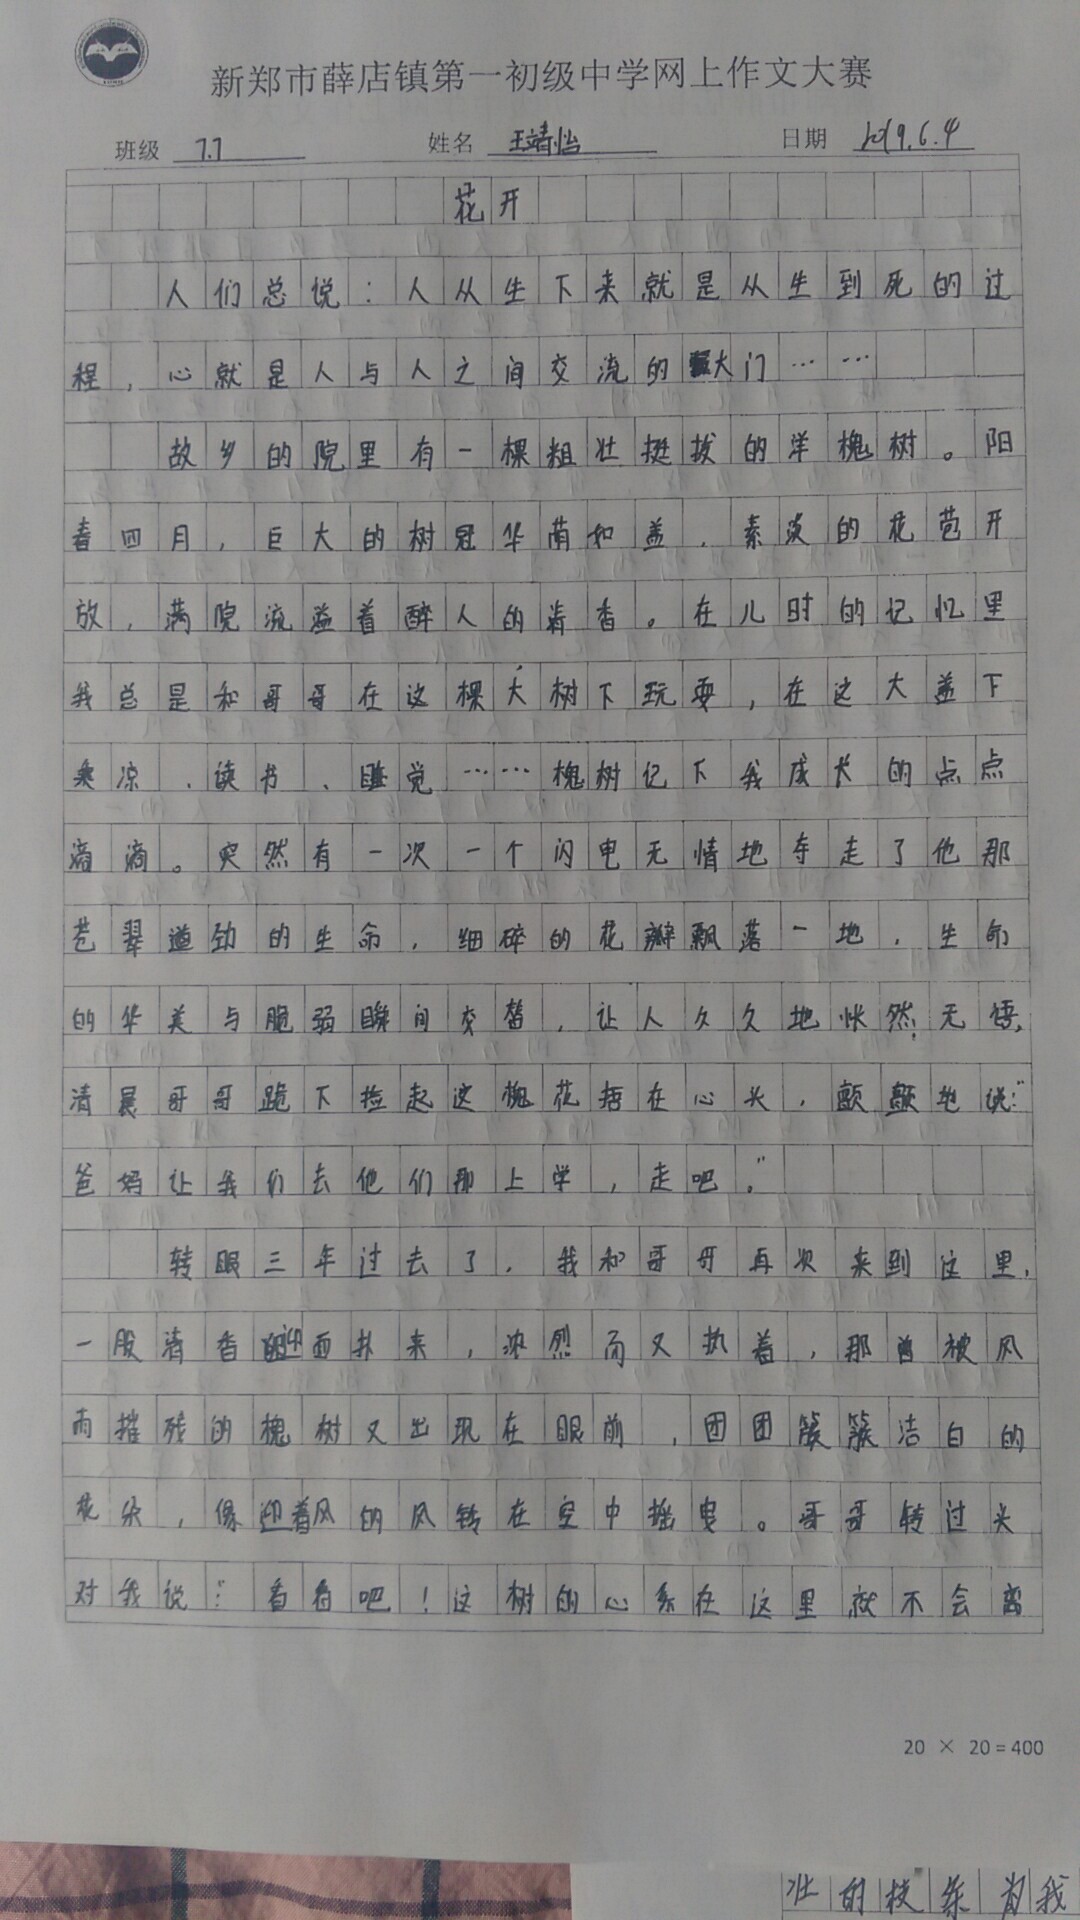 新郑市薛店镇第一初级中学网上作文大赛
班级 7.7 姓名 王靖怡 日期 2019.6.4
花开
人们总说：人从生下来就是从生到死的过
程，心就是人与人之间交流的大门……
故乡的院里有一棵粗壮挺拔的洋槐树。阳
春四月，巨大的树冠华茵如盖，素淡的花苞开
放，满院流溢着醉人的清香。在儿时的记忆里
我总是和哥哥在这棵大树下玩耍，在这大盖下
乘凉、读书、睡觉……槐树记下我成长的点点
滴滴。突然有一次一个闪电无情地夺走了他那
苍翠遒劲的生命，细碎的花瓣飘落一地，生命
的华美与脆弱瞬间交替，让人久久地怅然无语，
清晨哥哥跪下捡起这槐花捂在心头，颤颤地说："
爸妈让我们去他们那上学，走吧。"
转眼三年过去了，我和哥哥再次来到这里，
一股清香迎面扑来，浓烈而又执着，那曾被风
雨摧残的槐树又出现在眼前，团团簇簇洁白的
花朵，像迎着风的风铃在空中摇曳。哥哥转过头
对我说："看看吧！这树的心系在这里就不会离
20 × 20=400
壮的枝条为我